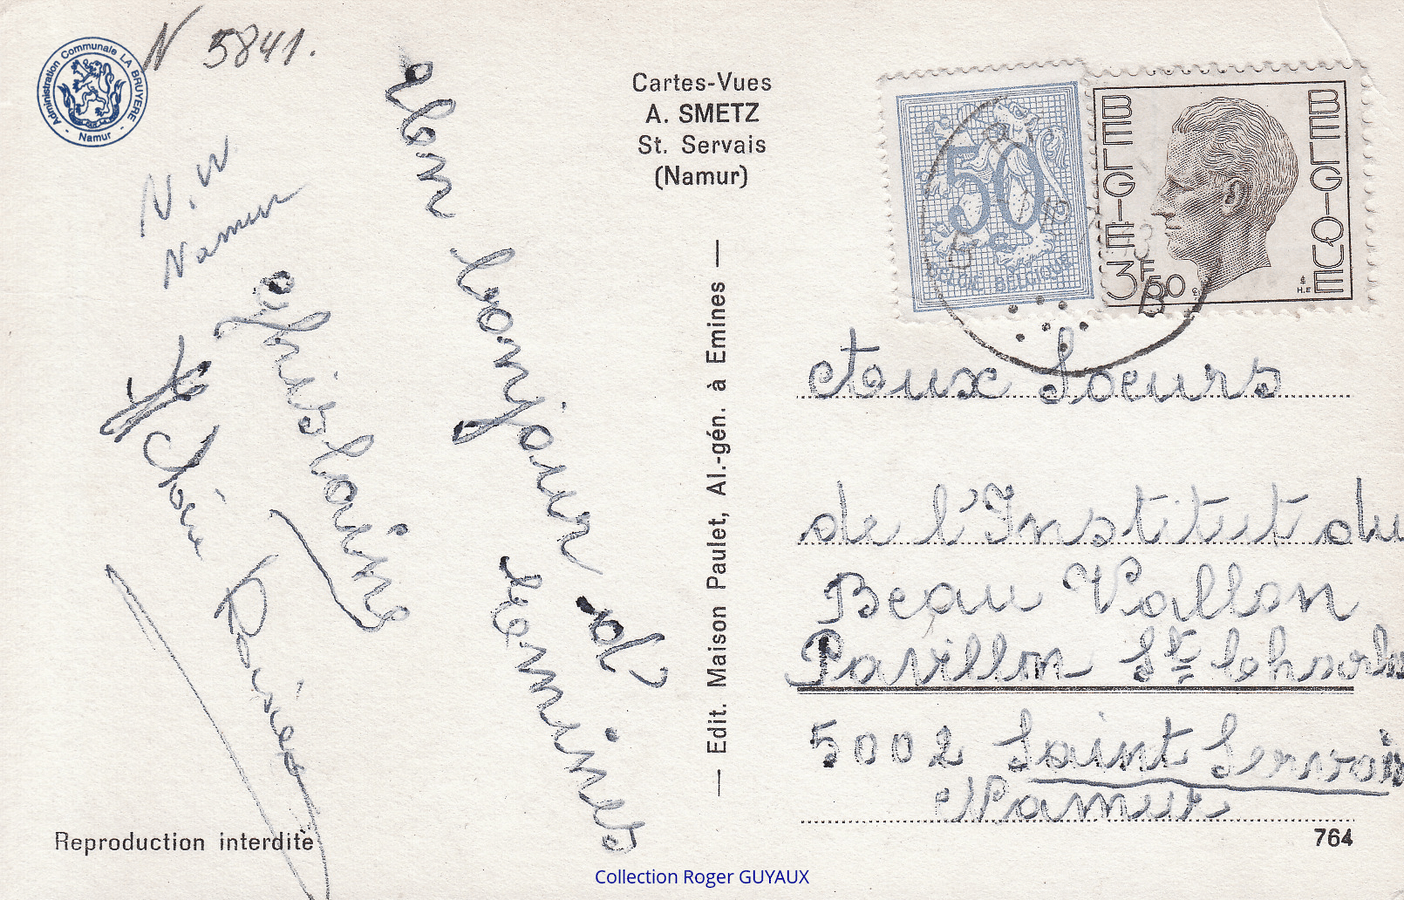 N 5841.
Administration Communale LA BRUYERE
- Namur -
N. W
Namur
ghislains
abon bonjour d'
eemines
Reproduction interdite
Cartes-Vues
A. SMETZ
St. Servais
(Namur)
— Edit. Maison Paulet, Al.-gén. à Emines —
50
BELGIE - BELGIQUE
BELGIE
BELGIQUE
3F50
B
Aux Soeurs
de l'Institut du
Beau Vallon
Pavillon St
5002 Saint Servais
Namur
764
Collection Roger GUYAUX